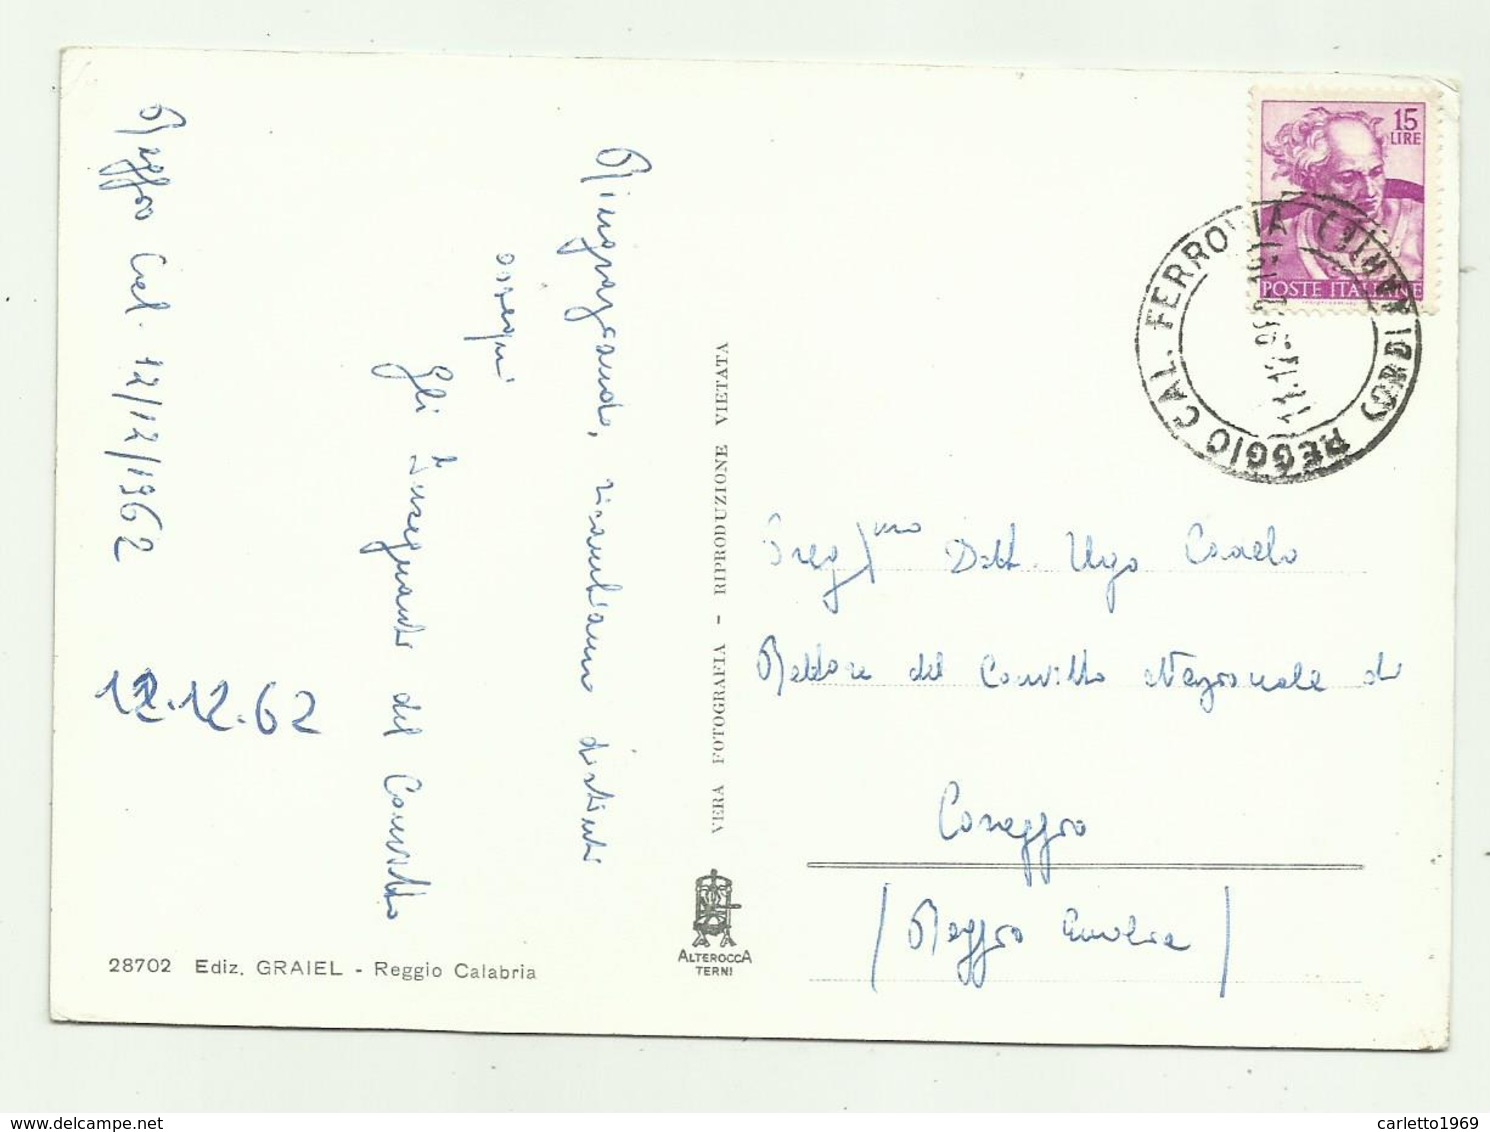 Reggio Cal. 12/12/1962
Ringraziando, ricambiamo distinti
ossequi
Gli Insegnanti del Convitto
12.12.62
28702 Ediz. GRAIEL - Reggio Calabria
VERA FOTOGRAFIA - RIPRODUZIONE VIETATA
ALTEROCCA
TERNI
15
LIRE
POSTE ITALIANE
REGGIO CAL. FERROVIA
Preg/mo Dott. Ugo
Rettore del Convitto Nazionale di
Correggio
(Reggio Emilia)
carletto1969
delcampe.net